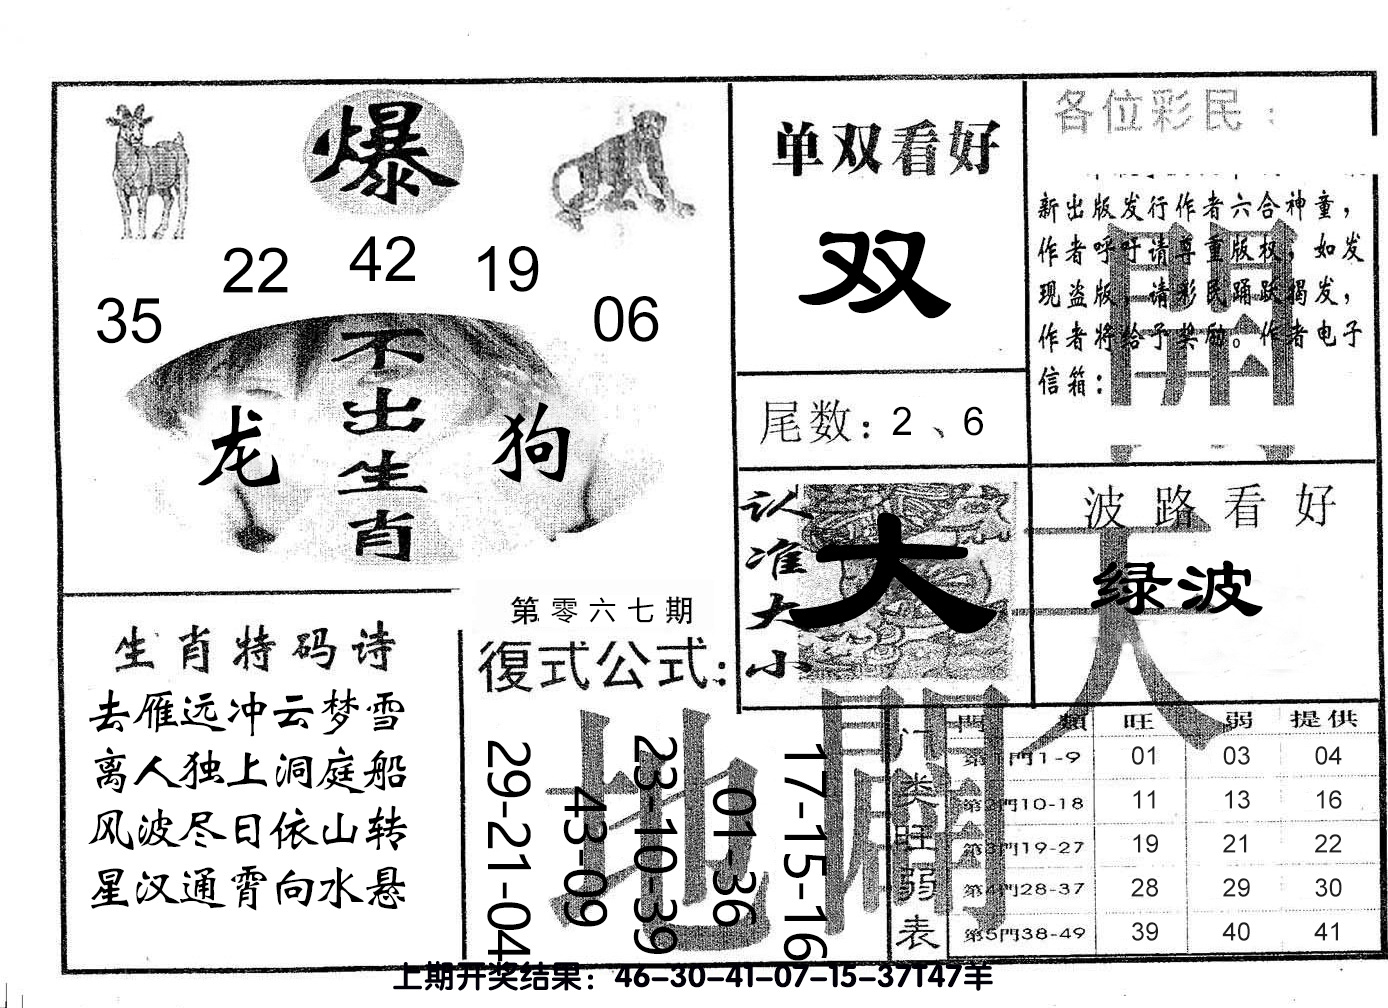 爆
35 22 42 19 06
不出生肖
龙 狗
单双看好
双
尾数：2、6
各位彩民：
新出版发行作者六合神童，
作者呼吁请尊重版权，如发
现盗版，请彩民踊跃揭发，
作者将给予奖励。作者电子
信箱：
認准大小
大
波路看好
绿波
生肖特码诗
去雁远冲云梦雪
离人独上洞庭船
风波尽日依山转
星汉通霄向水悬
第零六七期
復式公式：
29-21-04
43-09
23-10-39
01-36
17-15-16
天
開
地
門类旺弱表
門 類 旺 弱 提供
第1門1-9 01 03 04
第2門10-18 11 13 16
第3門19-27 19 21 22
第4門28-37 28 29 30
第5門38-49 39 40 41
上期开奖结果：46-30-41-07-15-37T47羊